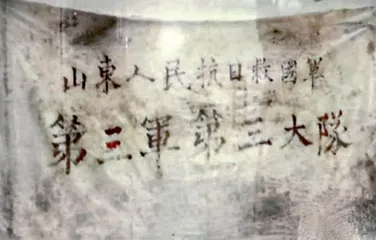 山東人民抗日救國軍
第三軍第三大隊